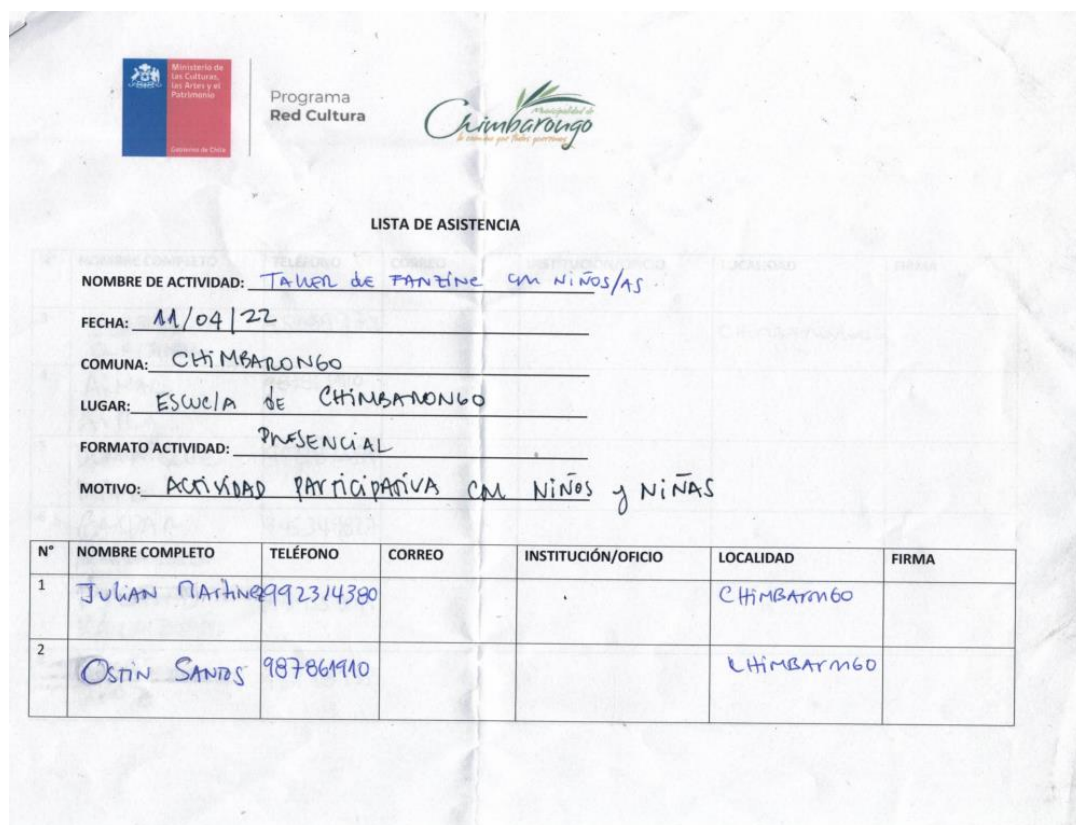 Ministerio de
las Culturas,
las Artes y el
Patrimonio
Gobierno de Chile
Programa
Red Cultura
Municipalidad de
Chimbarongo
LISTA DE ASISTENCIA
NOMBRE DE ACTIVIDAD: TALLER de FANZINE CON NIÑOS/AS.
FECHA: 11/04/22
COMUNA: CHIMBARONGO
LUGAR: ESCUELA de CHIMBARONGO
FORMATO ACTIVIDAD: PRESENCIAL
MOTIVO: ACTIVIDAD PARTICIPATIVA CON NIÑOS y NIÑAS
N° NOMBRE COMPLETO TELÉFONO CORREO INSTITUCIÓN/OFICIO LOCALIDAD FIRMA
1 JULIAN MARTINEZ 992314380 CHIMBARONGO
2 OSTIN SANTOS 987861910 CHIMBARONGO